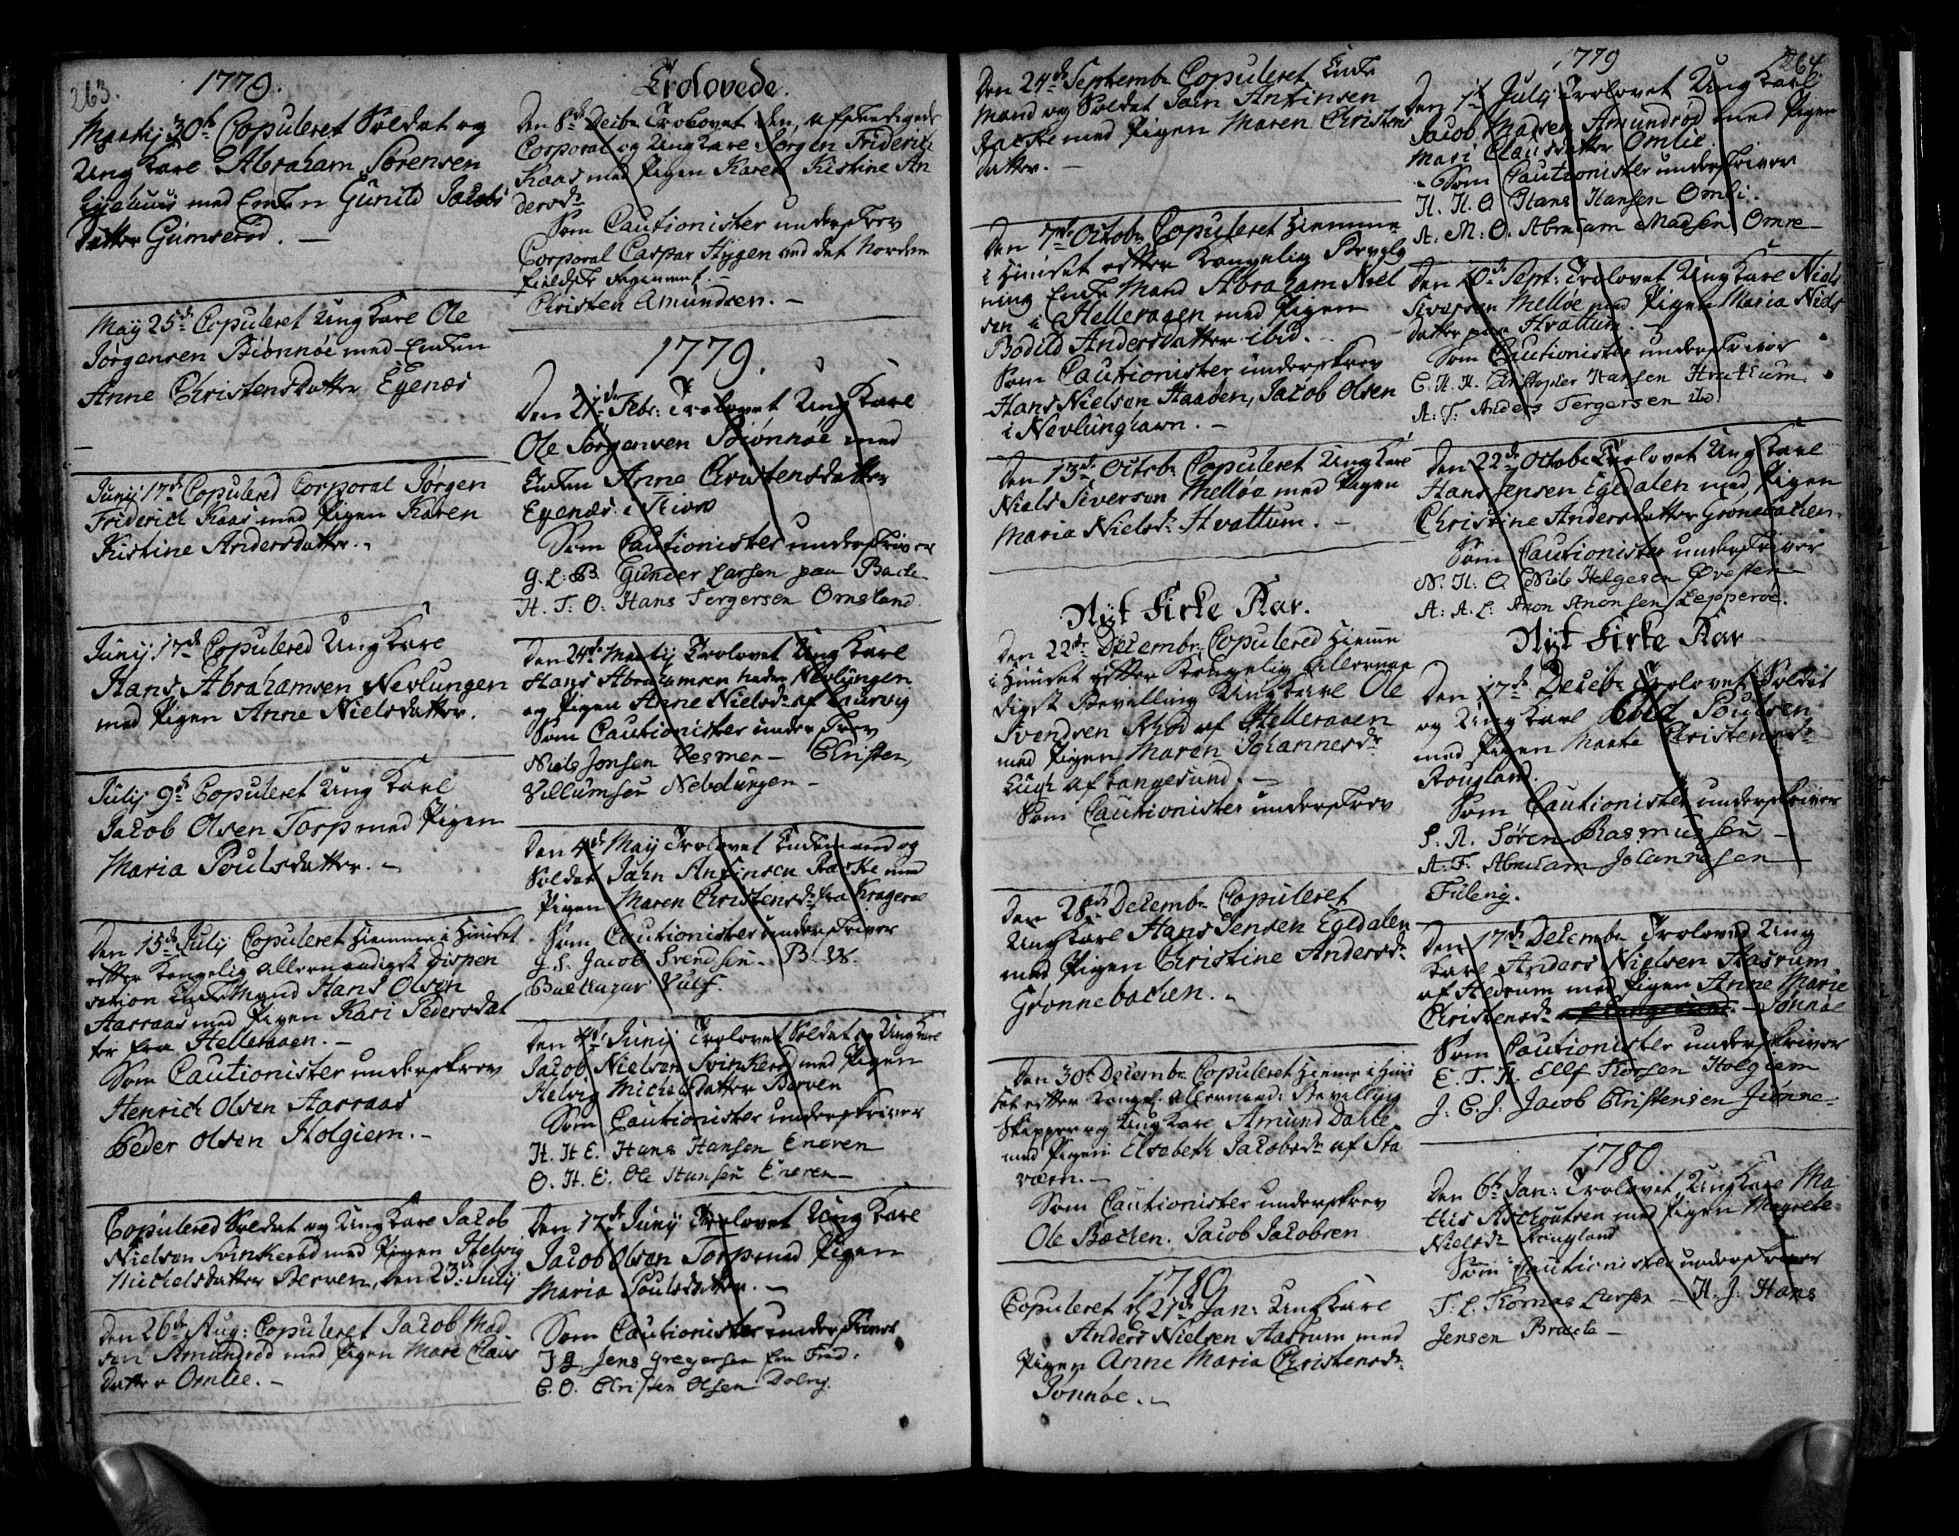 263.
1779.
Martij 30th Copuleret Soldat og
Ung Karl Abraham Sørensen
med Enken Gunild Jacobs
datter Gumserød. —
May 25de Copuleret Ung Karl Ole
Jørgensen Biønnøe med Enken
Anne Christensdatter Egenæs
Junij 17de Copulered Corporal Jørgen
Friderich Kaas med Pigen Karen
Kistine Andersdatter. —
Junij 17de Copulered Ung Karl
Hans Abrahamsen Nevlungen
med Pigen Anne Nielsdatter.
Julij 9de Copuleret Ung Karl
Jacob Olsen Torp med Pigen
Maria Poulsdatter. —
Den 15de Julij Copuleret hiemme i Huuset
efter Kongelig allernaadigst Dispen
sation Enke Mand Hans Olsen
Aarraas med Pigen Kari Pedersdat
ter fra Helleraaen. —
Som Cautionister underskrev
Henrich Olsen Aarraas
Peder Olsen Holgiem. —
Copulered Soldat og Ung Karl Jacob
Nielsen Svinkerød med Pigen Helvig
Michelsdatter Berven, den 23de Julij
Den 26de Aug: Copuleret Jacob Mad
sen Amundrød med Pigen Mari Claus
datter Omlie. —
Trolovede.
Den 8de Decbr Trolovet den afskedigede
Corporal og Ung Karl Jørgen Friderich
Kaas med Pigen Karen Kistine An
dersdr
Som Cautionister underskrev
Corporal Caspar Stygen ved det Norden
fieldske Regiment.
Christen Amundsen. —
1779.
Den 21de Febr: Trolovet Ung Karl
Ole Jørgensen Biønnøe med
Enken Anne Christensdatter
Egenæs i
Som Cautionister underskriver
G. L. B. Gunder Larsen paa Bache
H. T. O. Hans Tergersen Omsland.
Den 24de Martij Trolovet Ung Karl
Hans Abrahamsen Nevlungen
og Pigen Anne Nielsdr af Laurvig
Som Cautionister underskrev
Niels Jonsen — Christen
Villumsen Nevlungen —
Den 4de May Trolovet Enkemand og
Soldat Jahn Antinsen Raske med
Pigen Maren Christensdr fra Krageröe
Som Cautionister underskriver
J. S. Jacob Svendsen. B. W.
Baltazar Vulf.
Den 4de Junij Trolovet Soldat og Ung Karl
Jacob Nielsen Svinkerød med Pigen
Helvig Michelsdatter Berven
Som Cautionister underskriver
H. H. E. Hans Hansen Eneren
O. H. E. Ole Hansen Eneren —
Den 17de Junij Trolovet Ung Karl
Jacob Olsen Torp med Pigen
Maria Poulsdatter. —
Som Cautionister underskriver
J. G. Jens Gregersen
C. O. Christen Olsen
Den 24de Septembr Copuleret Enke
Mand og Soldat Jahn Antinsen
Raske med Pigen Maren Christens
datter. —
Den 7de Octobr Copuleret hiemme
i Huuset efter Kongelig Bevilg
ning Enke Mand Abraham Niel
sen i Helleraaen med Pigen
Bodild Andersdatter ibid. —
Som Cautionister underskrev
Hans Nielsen Haaden, Jacob Olsen
i Nevlunghavn. —
Den 13de Octobr Copuleret Ung Karl
Niels Siversen Melløe med Pigen
Maria Nielsdr Hvattum. —
Nyt Kirke Aar.
Den 22de Decembr Copulered hiemme
i Huuset efter Kongelig Allernaa
digst Bevilling Ung Karl Ole
Svendsen Rhod af Helleraaen
med Pigen Maren Johannesdr
af Langesund. —
Som Cautionister underskrev
Den 28de Decembr Copuleret
Ung Karl Hans Jensen Egedalen
med Pigen Christine Andersdr
Grønnebachen. —
Den 30te Decembr Copuleret hieme i Huu
set efter Kongel. allernaad: Bevilling
Skipper og Ung Karl Amund Dahle
med Pigen Elsebeth Jacobsdr af Sta
værn. —
Som Cautionister underskrev
Ole Bachen. Jacob Jacobsen
1780
Copuleret d 27de Jan: Ung Karl
Anders Nielsen Aasrum med
Pigen Anne Maria Christensdr
Jonnøe. —
1779
264.
Den 1te Julij Trolovet Ung Karl
Jacob Madsen Amundrød med Pigen
Mari Clausdatter Omlie.
Som Cautionister underskriver
H. H. O. Hans Hansen Omli.
A. M. O. Abraham Madsen Omre
Den 10de Sept: Trolovet Ung Karl Niels
Siversen Melløe med Pigen Maria Niels
datter paa Hvattum. —
Som Cautionister underskriver
C. H. H. Christopher Hansen Hvattum
A. T. Anders Tergersen ibd.
Den 22de Octobr Trolovet Ung Karl
Hans Jensen Egedalen med Pigen
Christine Andersdatter Grønebachen.
Som Cautionister underskriver
N. H. O. Niels Helgesen Øvesten
A. A. L. Anon Anonsen Lepperøe.
Nyt Kirke Aar
Den 17de Decbr Trolovet Soldat
og Ung Karl Poulsen
med Pigen Marte Christensdr
Rougland.
Som Cautionister underskriver
S. R. Sören Rasmussen —
A. J. Abraham Johannesen
Den 17de Decembr Trolovet Ung
Karl Anders Nielsen Aasrum
af Hedrum med Pigen Anne Marie
Christensdr af Langesund. Jonnøe
Som Cautionister underskriver
E. T. H. Ellf Torsen Holgiem
J. C. J. Jacob Christensen Jonnøe
1780
Den 6te Jan: Trolovet Ung Karl Ma
this Aschoutsen med Pigen Margrete
Nielsdr Krougland
Som Cautionister underskriver
T. L. Thomas Larsen — H. J. Hans
Jensen Braate —